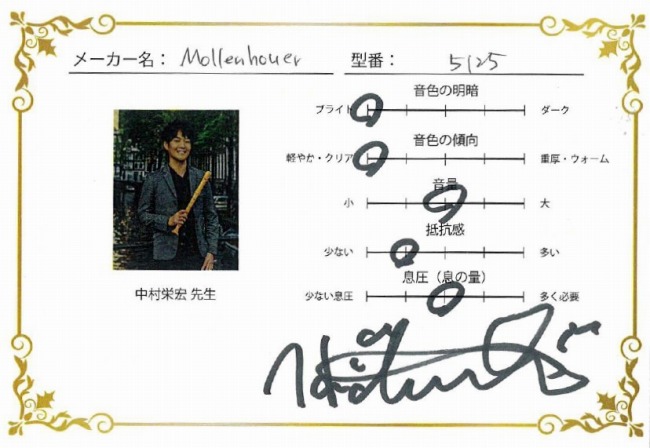 メーカー名： Mollenhouer 型番： 5125
音色の明暗
ブライト ダーク
音色の傾向
軽やか・クリア 重厚・ウォーム
音量
小 大
抵抗感
少ない 多い
息圧（息の量）
少ない息圧 多く必要
中村栄宏 先生